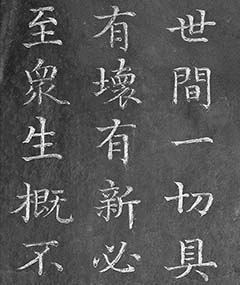 世間一切具
有壞有新必
至衆生概不